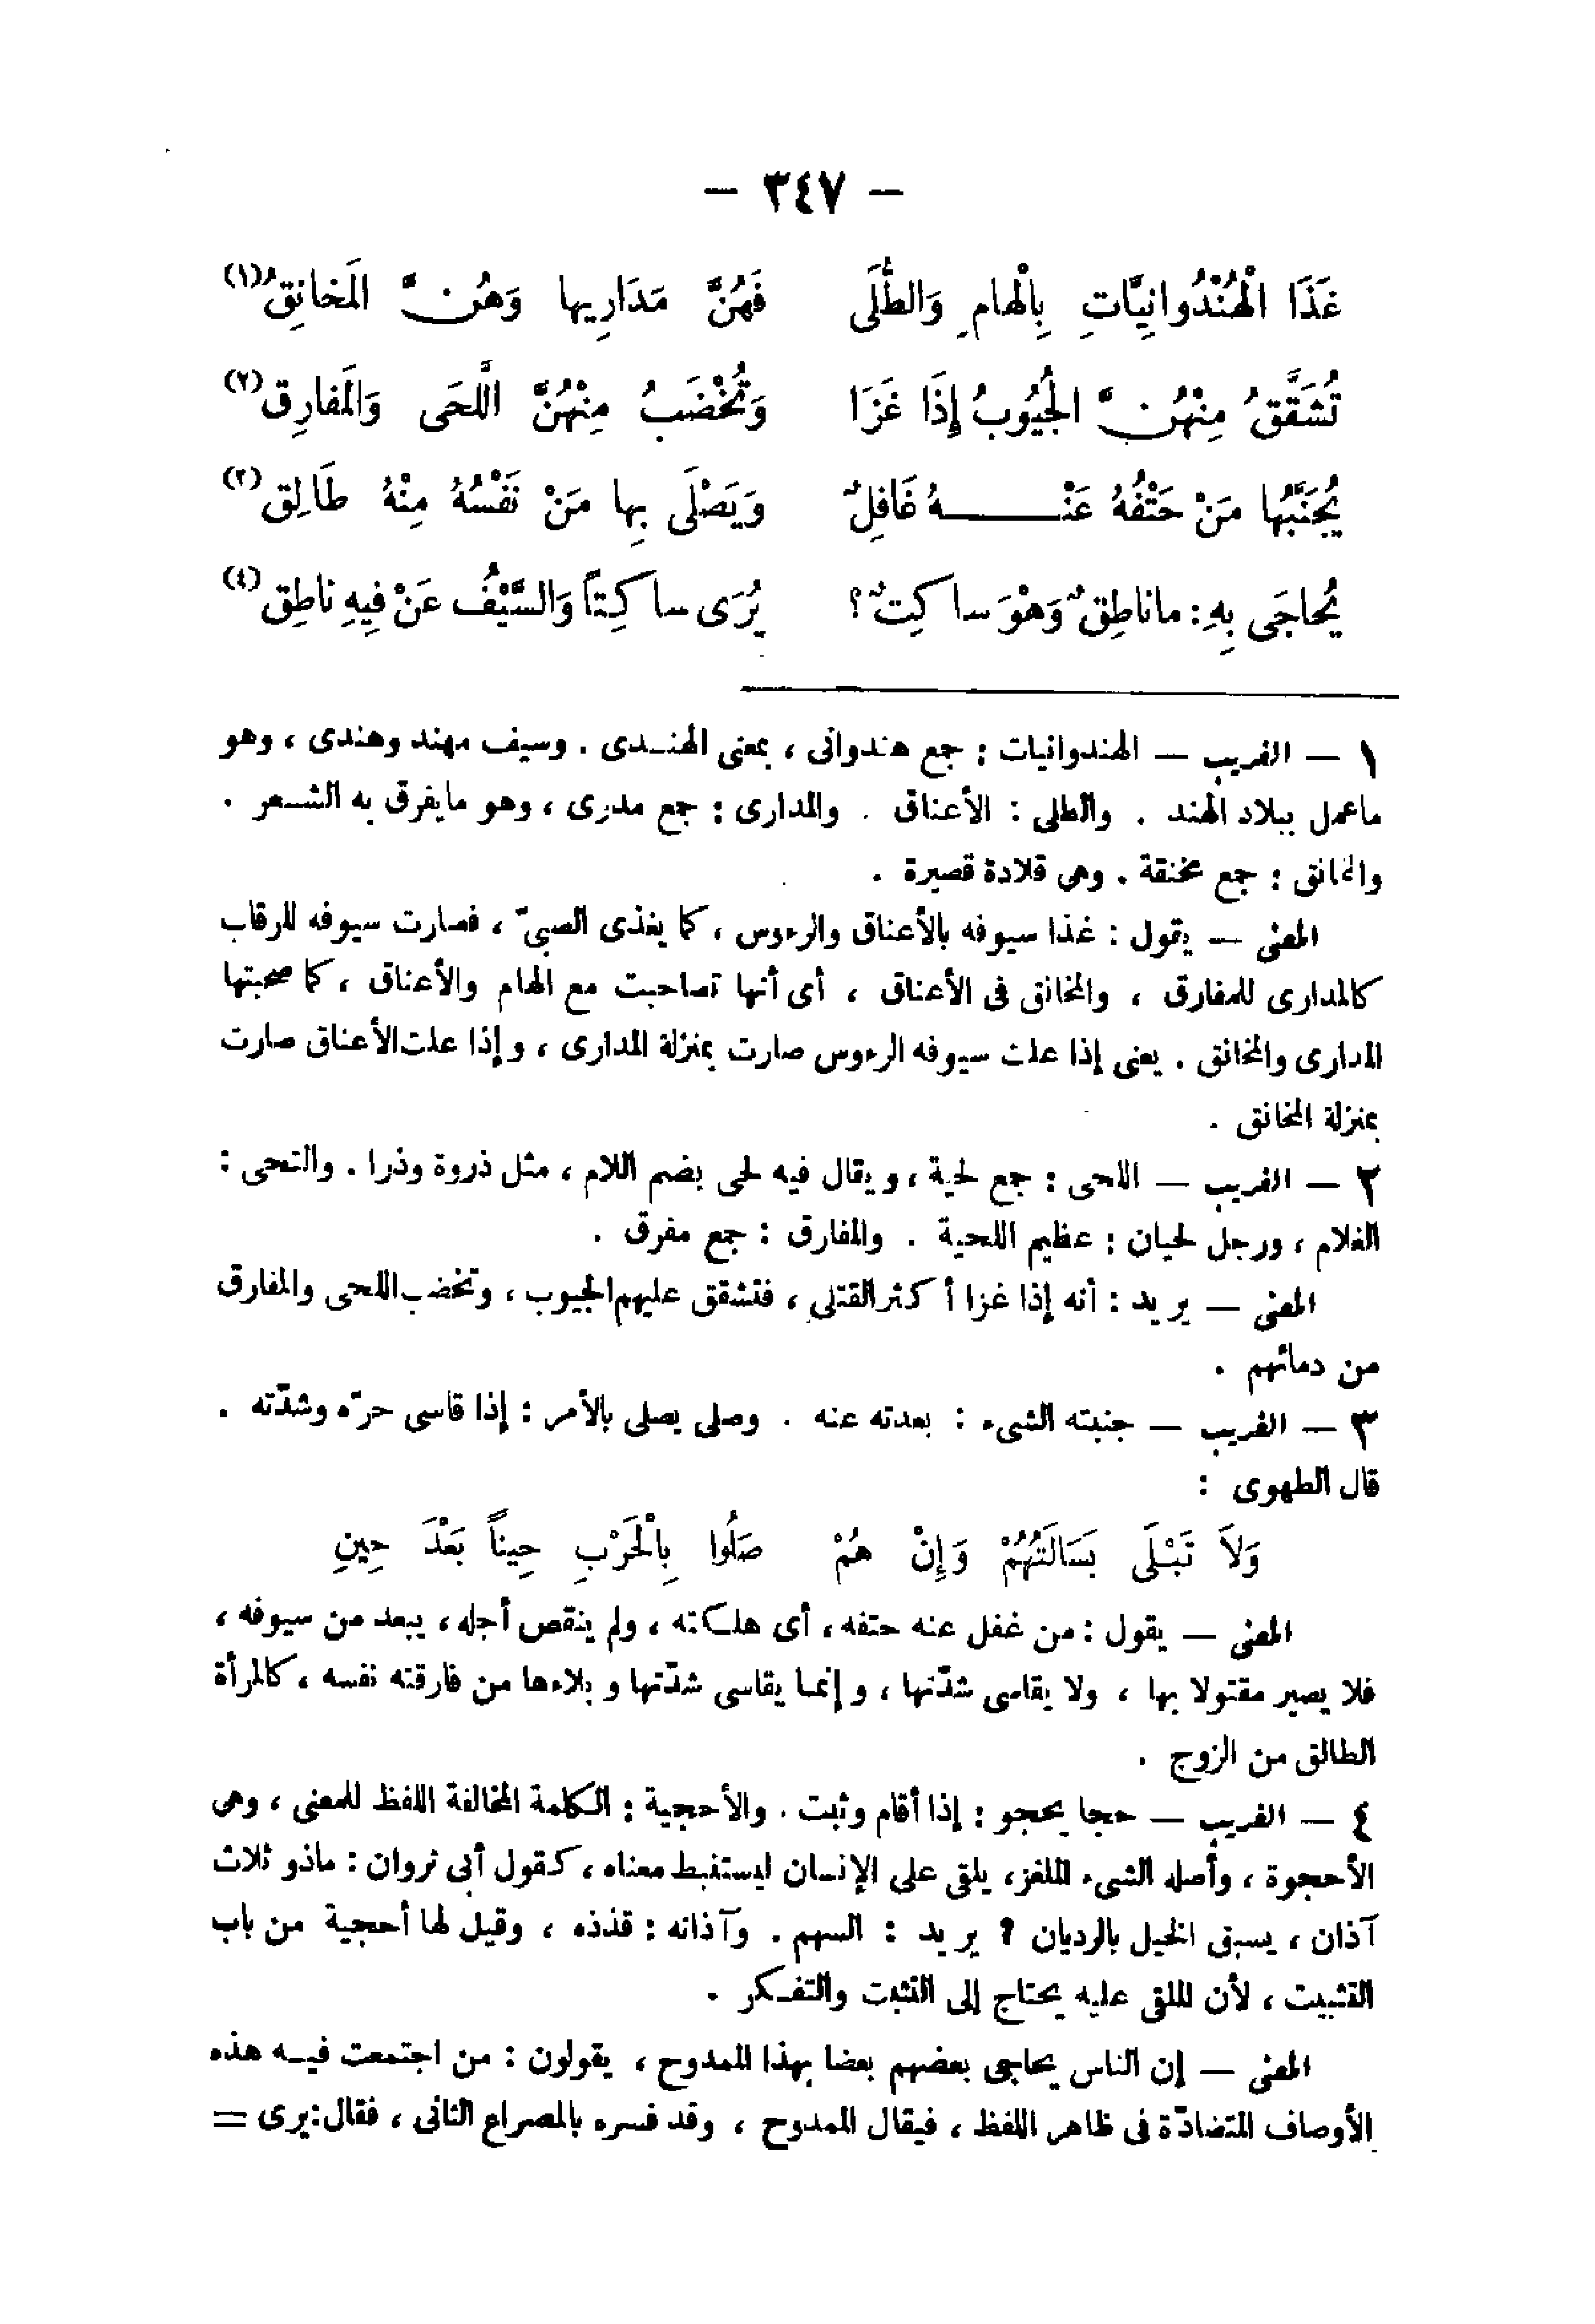 — ٣٤٧ —
غَذَا الْهُنْدُوانِيَّاتِ بِالْهامِ وَالطُّلَى فَهُنَّ مَدَارِيها وَهُنَّ المَخانِقُ (١)
تُشَقَّقُ مِنْهُنَّ الجُيُوبُ إِذَا غَزَا وَتُخْضَبُ مِنْهُنَّ اللَّحَى وَالمَفارِق (٢)
يُجَنَّبُها مَنْ حَتْفُهُ عَنْهُ غَافِلٌ وَيَصْلَى بِها مَنْ نَفْسُهُ مِنْهُ طَالِق (٣)
يُحاجَى بِهِ: ماناطِقٌ وَهْوَ ساكِتٌ؟ يُرَى ساكِتاً وَالسَّيْفُ عَنْ فِيهِ ناطِق (٤)
١ — الغريب — الهندوانيات : جمع هندوانى ، بمعنى الهندى . وسيف مهند وهندى ، وهو
ماعمل ببلاد الهند . والطلى : الأعناق . والمدارى : جمع مدرى ، وهو مايفرق به الشعر .
والمخانق : جمع مخنقة . وهى قلادة قصيرة .
المعنى — يقول : غذا سيوفه بالأعناق والرءوس ، كما يغذى الصبىّ ، فصارت سيوفه للرقاب
كالمدارى للمفارق ، والمخانق فى الأعناق ، أى أنها تصاحبت مع الهام والأعناق ، كما صحبتها
المدارى والمخانق . يعنى إذا علت سيوفه الرءوس صارت بمنزلة المدارى ، وإذا علت الأعناق صارت
بمنزلة المخانق .
٢ — الغريب — اللحى : جمع لحية ، ويقال فيه لحى بضم اللام ، مثل ذروة وذرا . والتحى :
الغلام ، ورجل لحيان : عظيم اللحية . والمفارق : جمع مفرق .
المعنى — يريد : أنه إذا غزا أكثر القتلى ، فتشقق عليهم الجيوب ، وتخضب اللحى والمفارق
من دمائهم .
٣ — الغريب — جنبته الشىء : بعدته عنه . وصلى يصلى بالأمر : إذا قاسى حرّه وشدّته .
قال الطهوى :
وَلاَ تَبْلَى بَسَالَتُهُمْ وَإِنْ هُمْ صَلُوا بِالْحَرْبِ حِيناً بَعْدَ حِينِ
المعنى — يقول : من غفل عنه حتفه ، أى هلكته ، ولم ينقص أجله ، يبعد من سيوفه ،
فلا يصير مقتولا بها ، ولا يقاسى شدّتها ، وإنما يقاسى شدّتها وبلاءها من فارقته نفسه ، كالمرأة
الطالق من الزوج .
٤ — الغريب — حجا يحجو : إذا أقام وثبت . والأحجية : الكلمة المخالفة اللفظ للمعنى ، وهى
الأحجوة ، وأصله الشىء الملغز ، يلقى على الإنسان ليستنبط معناه ، كقول أبى ثروان : ماذو ثلاث
آذان ، يسبق الخيل بالرديان ؟ يريد : السهم . وآذانه : قذذه ، وقيل لها أحجية من باب
التثبيت ، لأن الملقى عليه يحتاج إلى التثبت والتفكر .
المعنى — إن الناس يحاجى بعضهم بعضا بهذا الممدوح ، يقولون : من اجتمعت فيه هذه
الأوصاف المتضادّة فى ظاهر اللفظ ، فيقال الممدوح ، وقد فسره بالمصراع الثانى ، فقال : يرى =